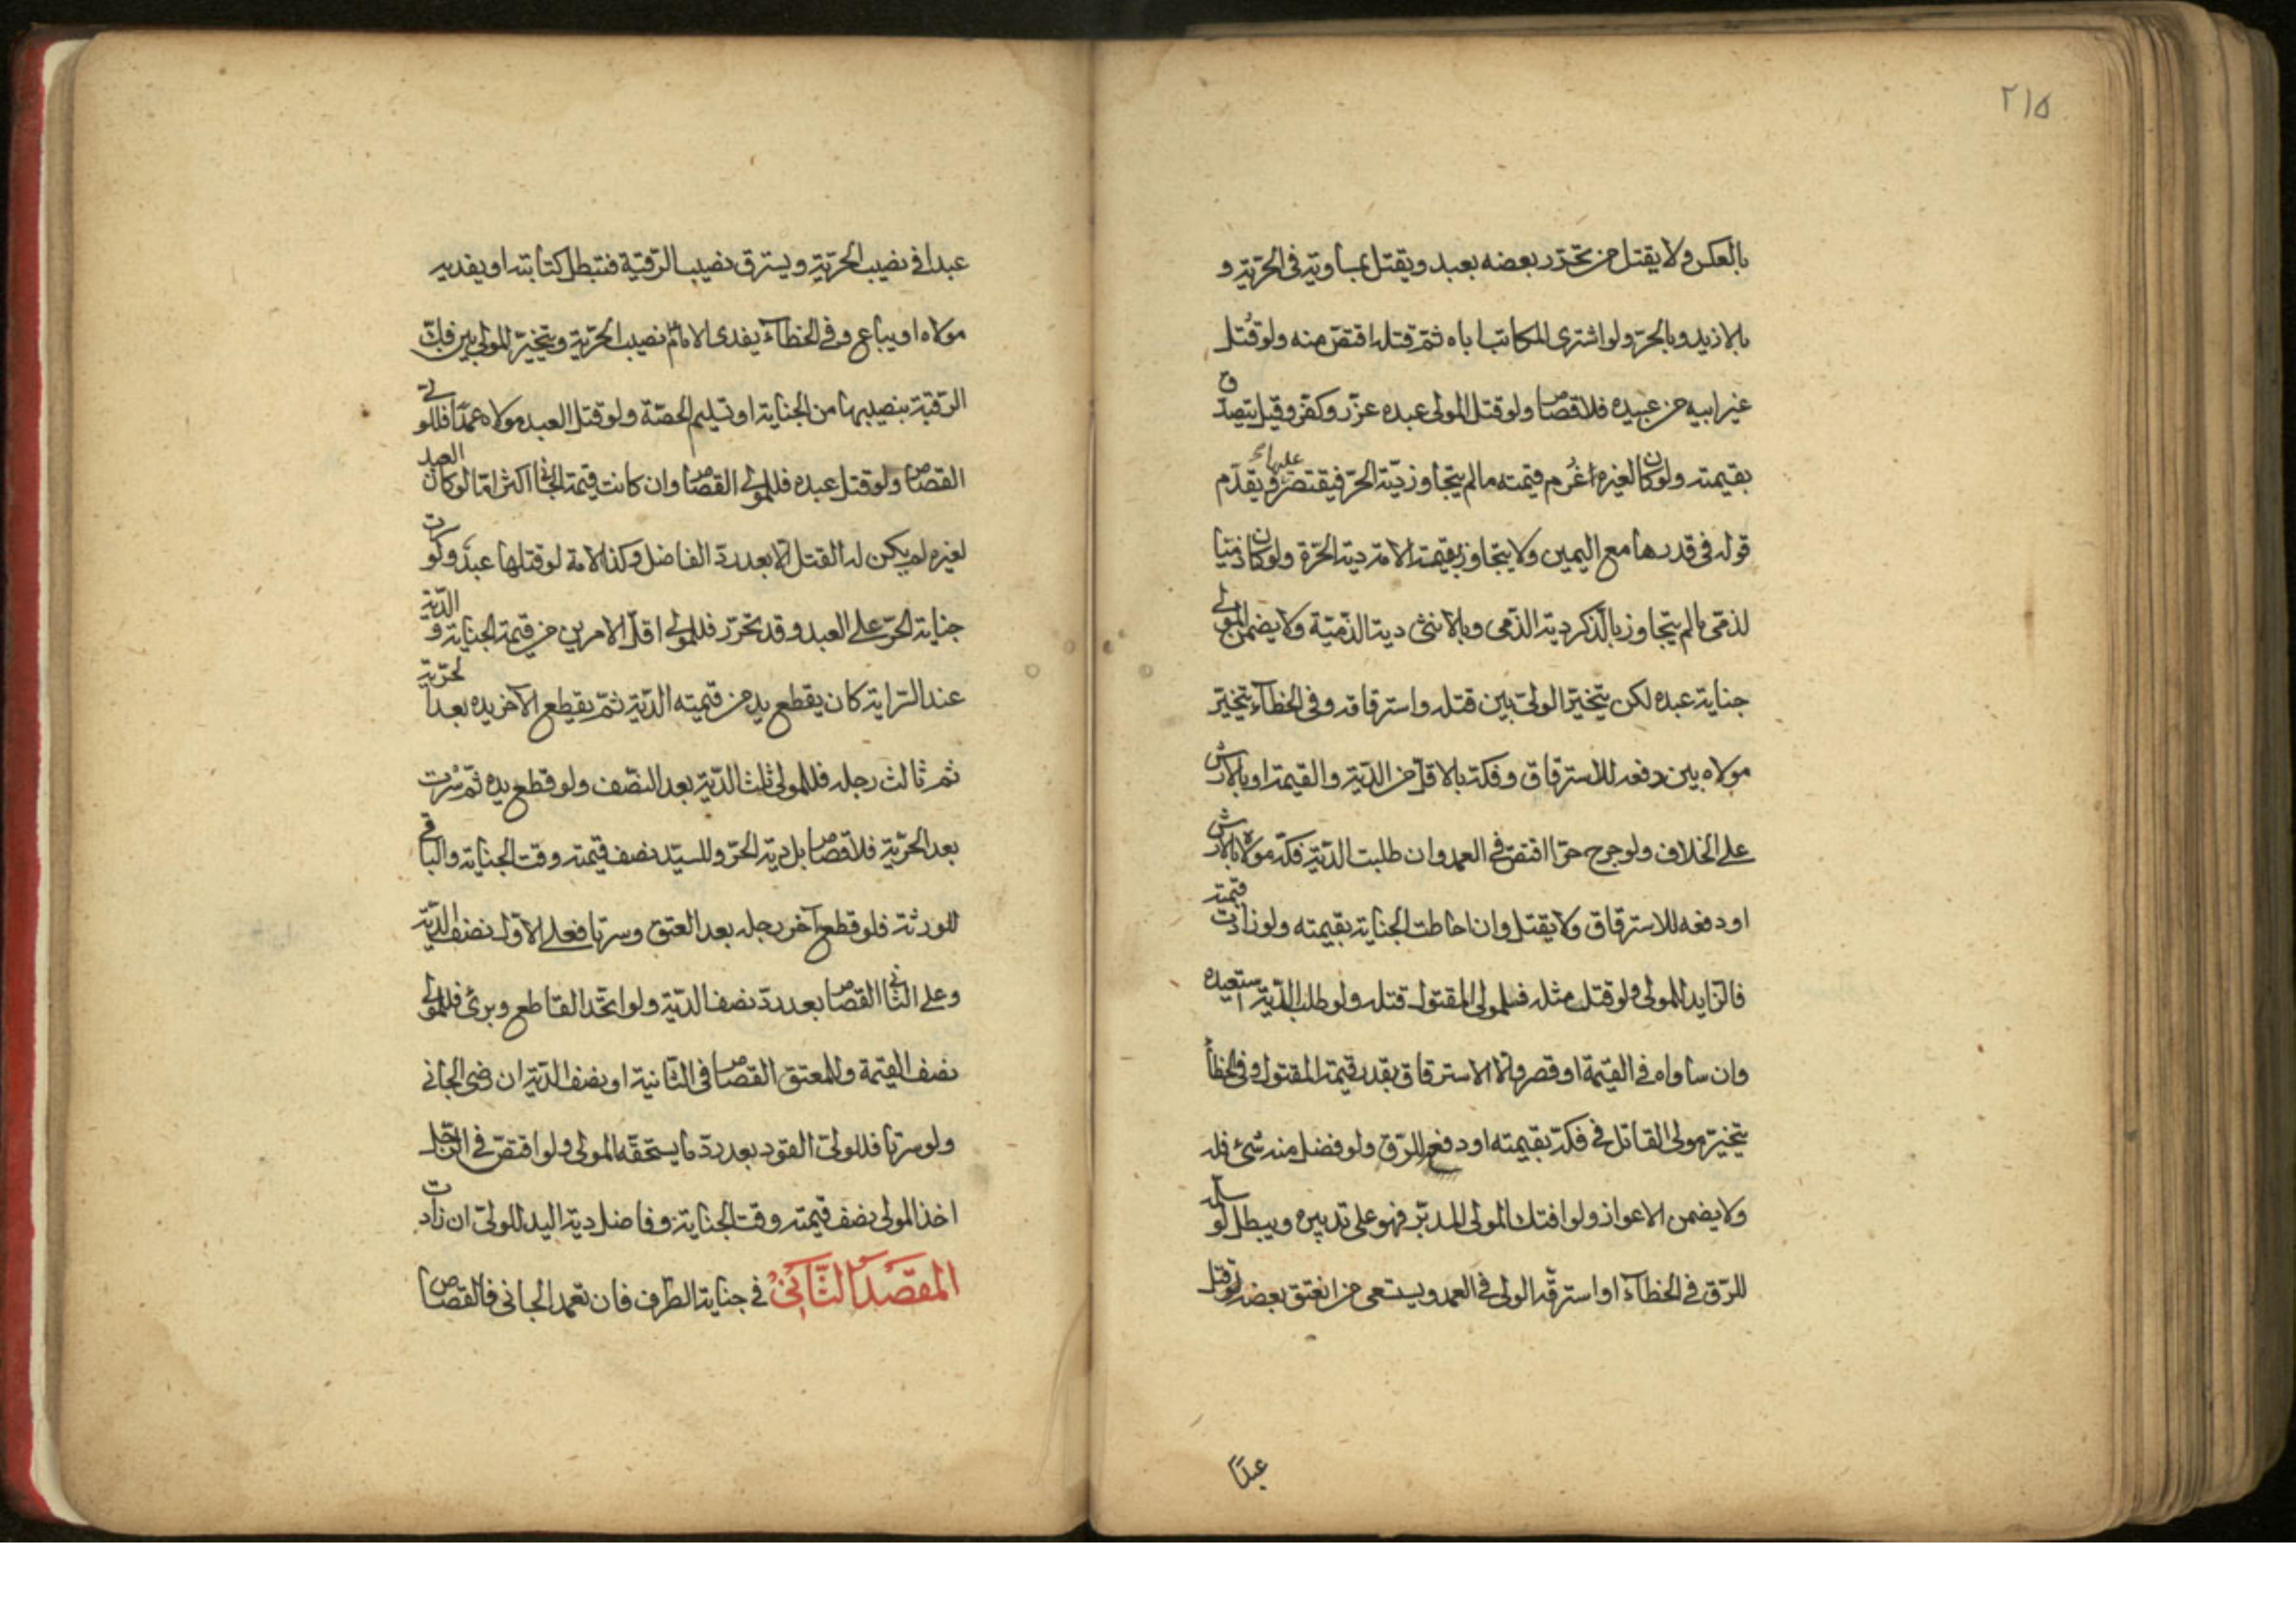 ٢١۵
بالعكس ولا يقتل من تحرّر بعضه بعبد ويقتل بمساويه في الحرّية و
بالازيد وبالحرّ ولو اشترى المكاتب اباه ثمّ قتله اقتصّ منه ولو قُتل
غير ابيه من عبيده فلا قصاص ولو قتل المولى عبده عزّر وكفّر وقيل يتصدّق
بقيمته ولو كان لغيره اغرم قيمته ما لم يتجاوز ديّة الحرّ فيقتصر عليها ويقدّم
قوله في قدرها مع اليمين ولا يتجاوز بقيمة الامة دية الحرّة ولو كان ذميّا
لذمّي لم يتجاوز بالذّكر دية الذّمي وبالانثى دية الذّميّة ولا يضمن المولى
جناية عبده لكن يتخيّر الولىّ بين قتله واسترقاقه وفي الخطآء يتخيّر
مولاه بين دفعه للاسترقاق وفكّه بالاقلّ من الديّة والقيمة او بالارش
على الخلاف ولو جرح حرّا اقتصّ في العمد وان طلبت الديّة فكّه مولاه بالارش
او دفعه للاسترقاق ولا يقتل وان احاطت الجناية بقيمته ولو زادت قيمته
فالزّايد للمولى ولو قتل مثله فلمولى المقتول قتله ولو طلب الدّية استعبده
وان ساواه في القيمة او قصر والا الاسترقاق بقدر قيمة المقتول وفي الخطأ
يتخيّر مولى القاتل في فكّه بقيمته او دفع للرّق ولو فضل منه شئ فله
ولا يضمن الاعواز ولو افتك المولى المدبّر فهو على تدبيره ويبطل لو سلّمه
للرّق في الخطآء او استرقّه الولى في العمد ويستعى من انعتق بعضه لو قتل
عبدًا
عبدا في نصيب الحرّية ويسترق نصيب الرّقيّة فتبطل كتابته او يفديه
مولاه او يباع وفي الخطآء يفدى الامام نصيب الحرّية ويتخيّر المولى بين فكّ
الرّقيّة بنصيبها من الجناية او تسليم الحصّة ولو قتل العبد مولاه عمدًا فللولى
القصاص ولو قتل عبده فللمولى القصاص وان كانت قيمة الجاني اكثر امّا لو كان العبد
لغيره لم يكن له القتل الّا بعد ردّ الفاضل وكذا الامة لو قتلها عبد ولو سرت
جناية الحرّ على العبد وقد تحرّر فللمولى اقلّ الامرين من قيمة الجناية والديّة
عند السّراية كان يقطع يد من قيمته الديّة ثمّ يقطع الآخر يده بعد الحرّية
ثم ثالث رجله فللمولى ثلث الديّة بعد النّصف ولو قطع يده ثمّ سرت
بعد الحرّية فلا قصاص بل دية الحرّ وللسيّد نصف قيمته وقت الجناية والباقي
للورثة فلو قطع آخر رجله بعد العتق وسريا فعلى الاوّل نصف الديّة
وعلى الثاني القصاص بعد ردّ نصف الديّة ولو اتّحد القاطع وبرئ فللمولى
نصف القيمة وللمعتق القصاص في الثانية او نصف الديّة ان رضى الجاني
ولو سريا فللولىّ القود بعد ردّ ما يستحقّه المولى ولو اقتصّ في الرّجل
اخذ المولى نصف قيمته وقت الجناية وفاضل دية اليد للولىّ ان زادت
المقصد الثّاني في جناية الطرف فان تعمد الجاني فالقصاص